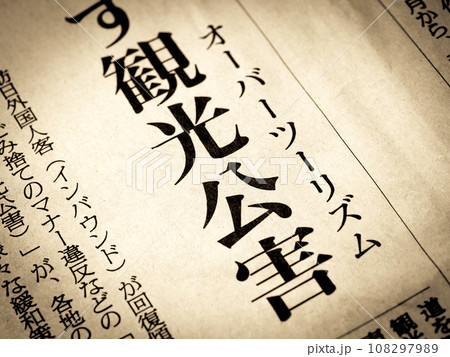 月から、
オーバーツーリズム
す観光公害
訪日外国人客（インバウンド）が回復傾
ごみ捨てのマナー違反などの「
光公害）」が、各地の
々な緩和策
道を
観
PIXTA
pixta.jp - 108297989